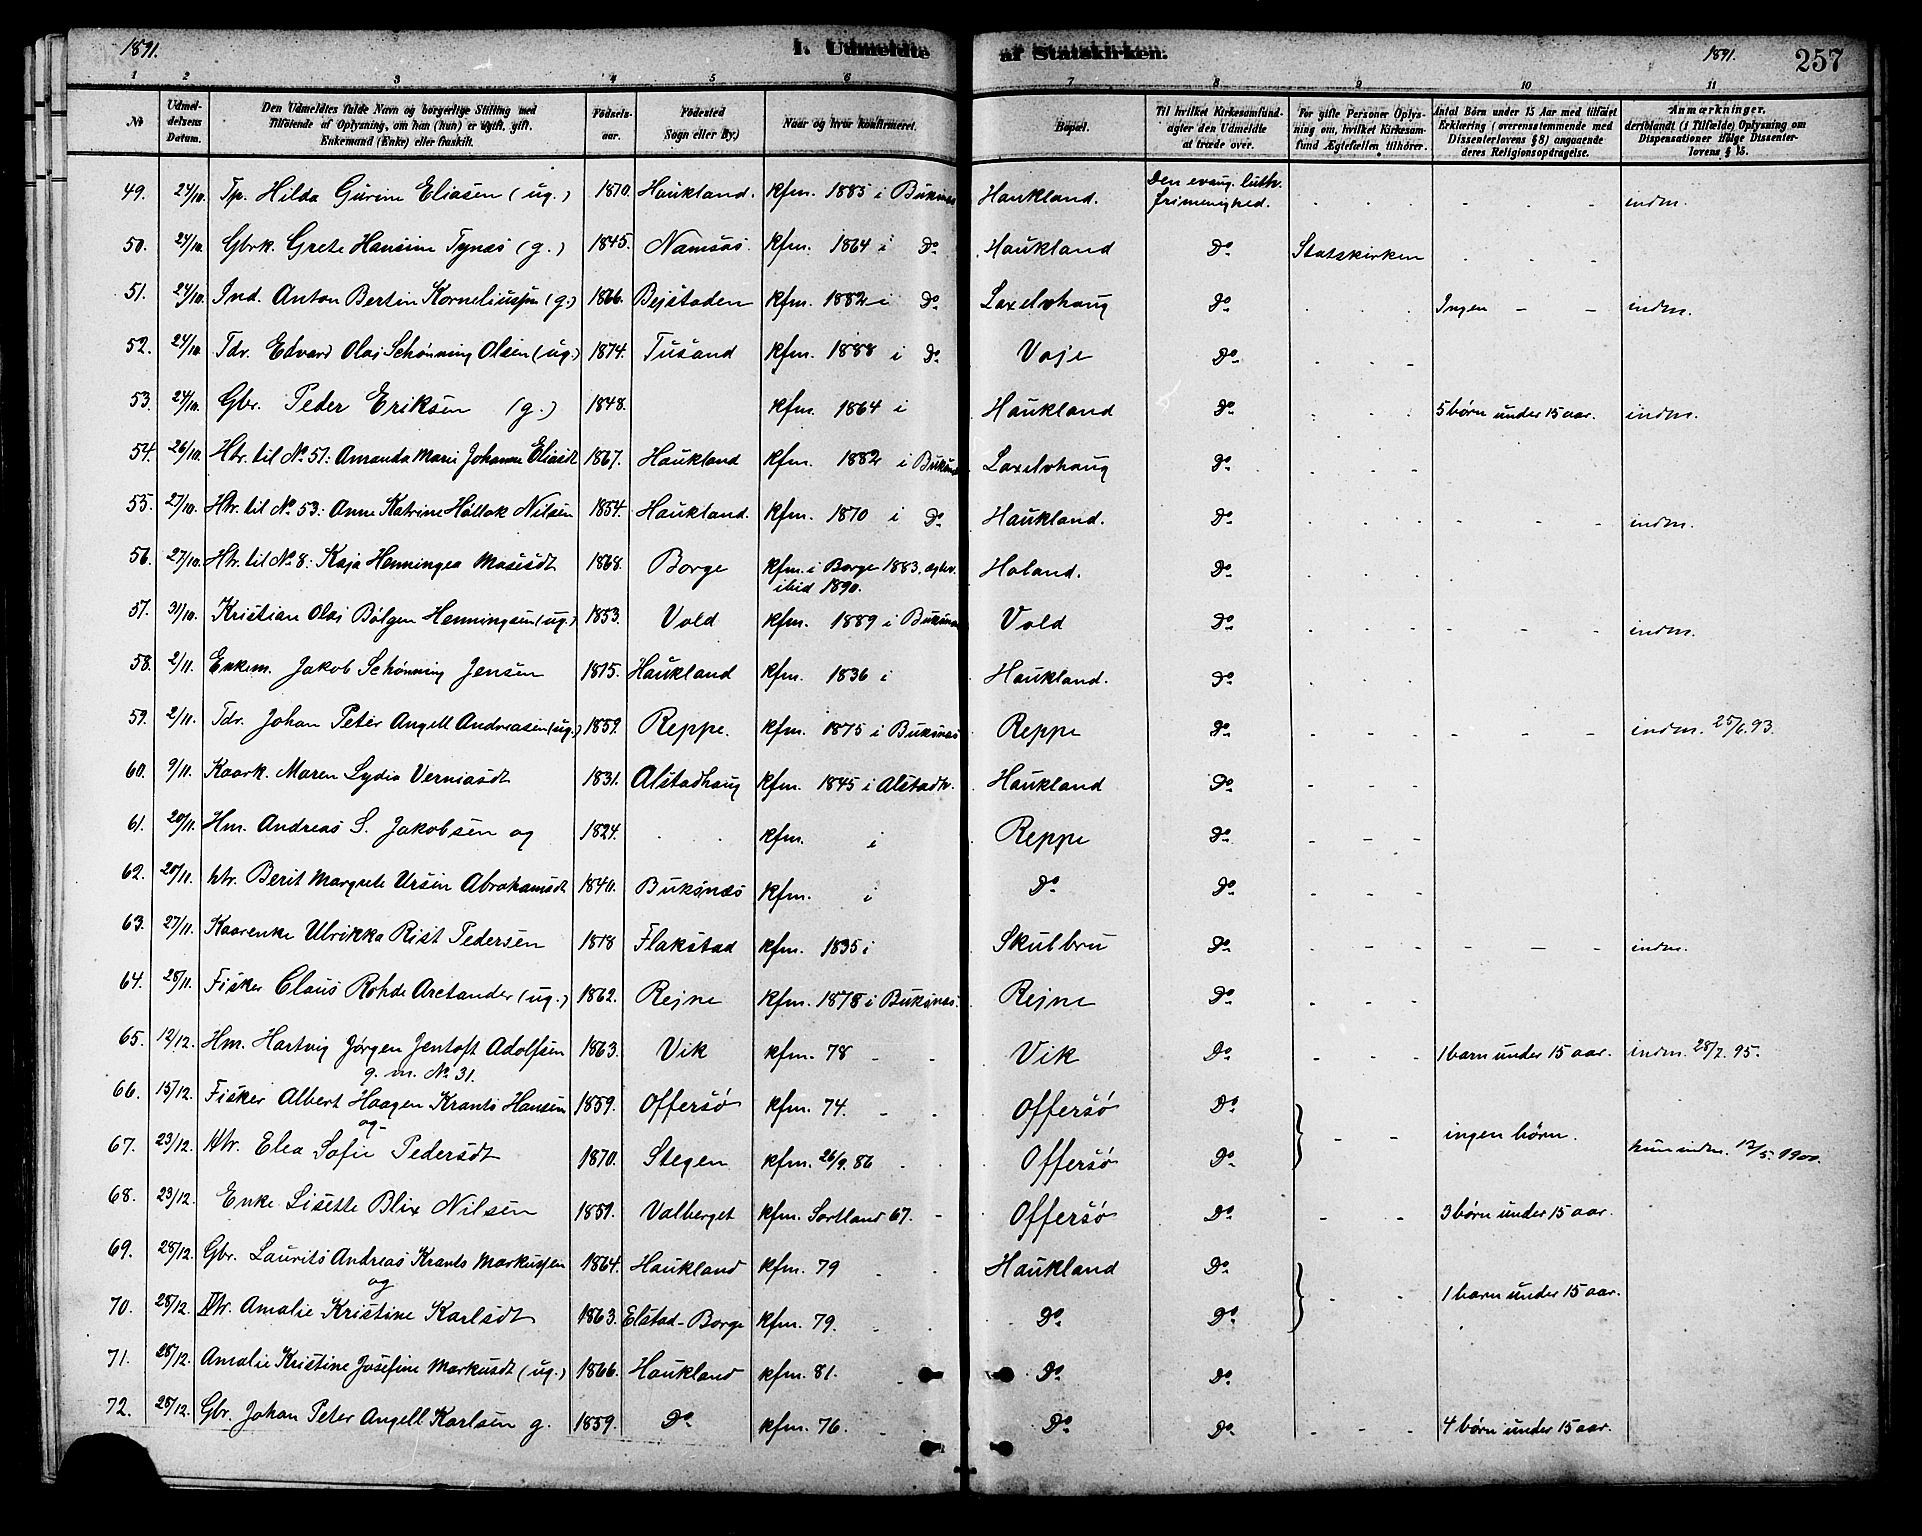 1891.
I. Udmeldte af Statskirken.
1891.
257
1 2 3 4 5 6 7 8 9 10 11
No
Udmel-
delsens
Datum.
Den Udmeldtes fulde Navn og borgerlige Stilling med
Tilføiende af Oplysning, om han (hun) er ugift, gift,
Enkemand (Enke) eller fraskilt.
Fødsels-
aar.
Fødested
Sogn eller By.)
Naar og hvor konfirmeret.
Bopæl.
Til hvilket Kirkesamfund
agter den Udmeldte
at træde over.
For gifte Personer Oplys-
ning om, hvilket Kirkesam-
fund Ægtefællen tilhører.
Antal Børn under 15 Aar med tilføiet
Erklæring (overensstemmende med
Dissenterlovens § 8) angaaende
deres Religionsopdragelse.
Anmærkninger,
deriblandt (i Tilfælde) Oplysning om
Dispensationer ifølge Dissenter-
lovens § 15.
49. 24/10. Tp. Hilda Gurine Eliasen (ug.) 1870. Haukland. kfm. 1885 i Buksnæs Haukland. Den evang. luth. frimenighed. indm.
50. 24/10. Gbrk. Grete Hansine Tynæs (g.) 1845. Namsos. kfm. 1864 i Do Haukland Do Statskirken
51. 24/10. Ind. Anton Bertin Korneliussen (g.) 1866. Bejstaden kfm. 1882 i Do Laxelvhaug Do Ingen - - indm.
52. 24/10. Tdr. Edvard Olaj Schønning Olsen (ug.) 1874. Tusand kfm. 1888 i Do Voje Do
53. 24/10. Gbr. Peder Eriksen (g.) 1848. kfm. 1864 i Haukland Do 5 børn under 15 aar. indm.
54. 26/10. Htr. til No 51: Amanda Marie Johanne Eliasdt 1867. Haukland kfm. 1882 i Buksnæs Laxelvhaug Do
55. 27/10. Htr. til No 53: Anne Katrine Høllok Nilsen 1854. Haukland. kfm. 1870 i Do Haukland. Do indm.
56. 27/10. Htr. til No 8: Kaja Henningea Masisdt 1868. Borge kfm. i Borge 1883. ibid 1890. Holand. Do
57. 31/10. Kristian Olaj Bølgen Henningsen (ug.) 1853. Vold kfm. 1889 i Buksnæs Vold Do indm.
58. 2/11. Enkem. Jakob Schønning Jensen 1815. Haukland kfm. 1836 i Haukland. Do
59. 2/11. Tdr. Johan Peter Angell Andreasen (ug.) 1859. Reppe. kfm. 1875 i Buksnæs Reppe Do indm. 25/6.93.
60. 9/11. Kaark. Maren Lydia Verniasdt 1831. Alstadhaug kfm. 1845 i Alstadh. Haukland Do
61. 20/11. Hm. Andreas S. Jakobsen og 1824. kfm. i Reppe Do
62. 20/11. htr. Berit Margrete Ursin Abrahamsdt 1840. Buksnæs kfm. i Do Do
63. 27/11. Kaarenke Ulrikka Rist Pedersen 1818 Flakstad kfm. 1835 i Skulbru Do indm.
64. 28/11. Fisker Claus Rohde Arctander (ug.) 1862. Rejne kfm. 1878 i Buksnæs. Rejne Do
65. 12/12. Hm. Hartvig Jørgen Jentoft Adolfsen 1863. Vik kfm. 78 - - Vik Do 1 barn under 15 aar. indm. 28/7. 95.
g. m. No 31.
66. 15/12. Fisker Albert Haagen Krants Hansen 1859. Offersø kfm. 74. - - Offersø Do
og
ingen børn.
67. 23/12. Htr. Elea Sofie Pedersdt 1870. Stegen kfm. 26/9. 86 Offersø Do hun indm. 12/5.1900.
68. 23/12. Enke Lisette Blix Nilsen 1851. Valberget kfm. Sortland 67. - Offersø Do 3 børn under 15 aar.
69. 28/12. Gbr. Laurits Andreas Krants Markussen 1864. Haukland kfm. 79 Haukland Do
og
1 barn under 15 aar.
70. 28/12. Htr. Amalie Kristine Karlsdt 1863. Elstad-Borge kfm. 79. Do Do
71. 28/12. Amalie Kristine Josefine Markusdt (ug.) 1866. Haukland kfm. 81. Do Do
72. 28/12. Gbr. Johan Peter Angell Karlsen g. 1859. Do kfm. 76. Do Do 4 børn under 15 aar.